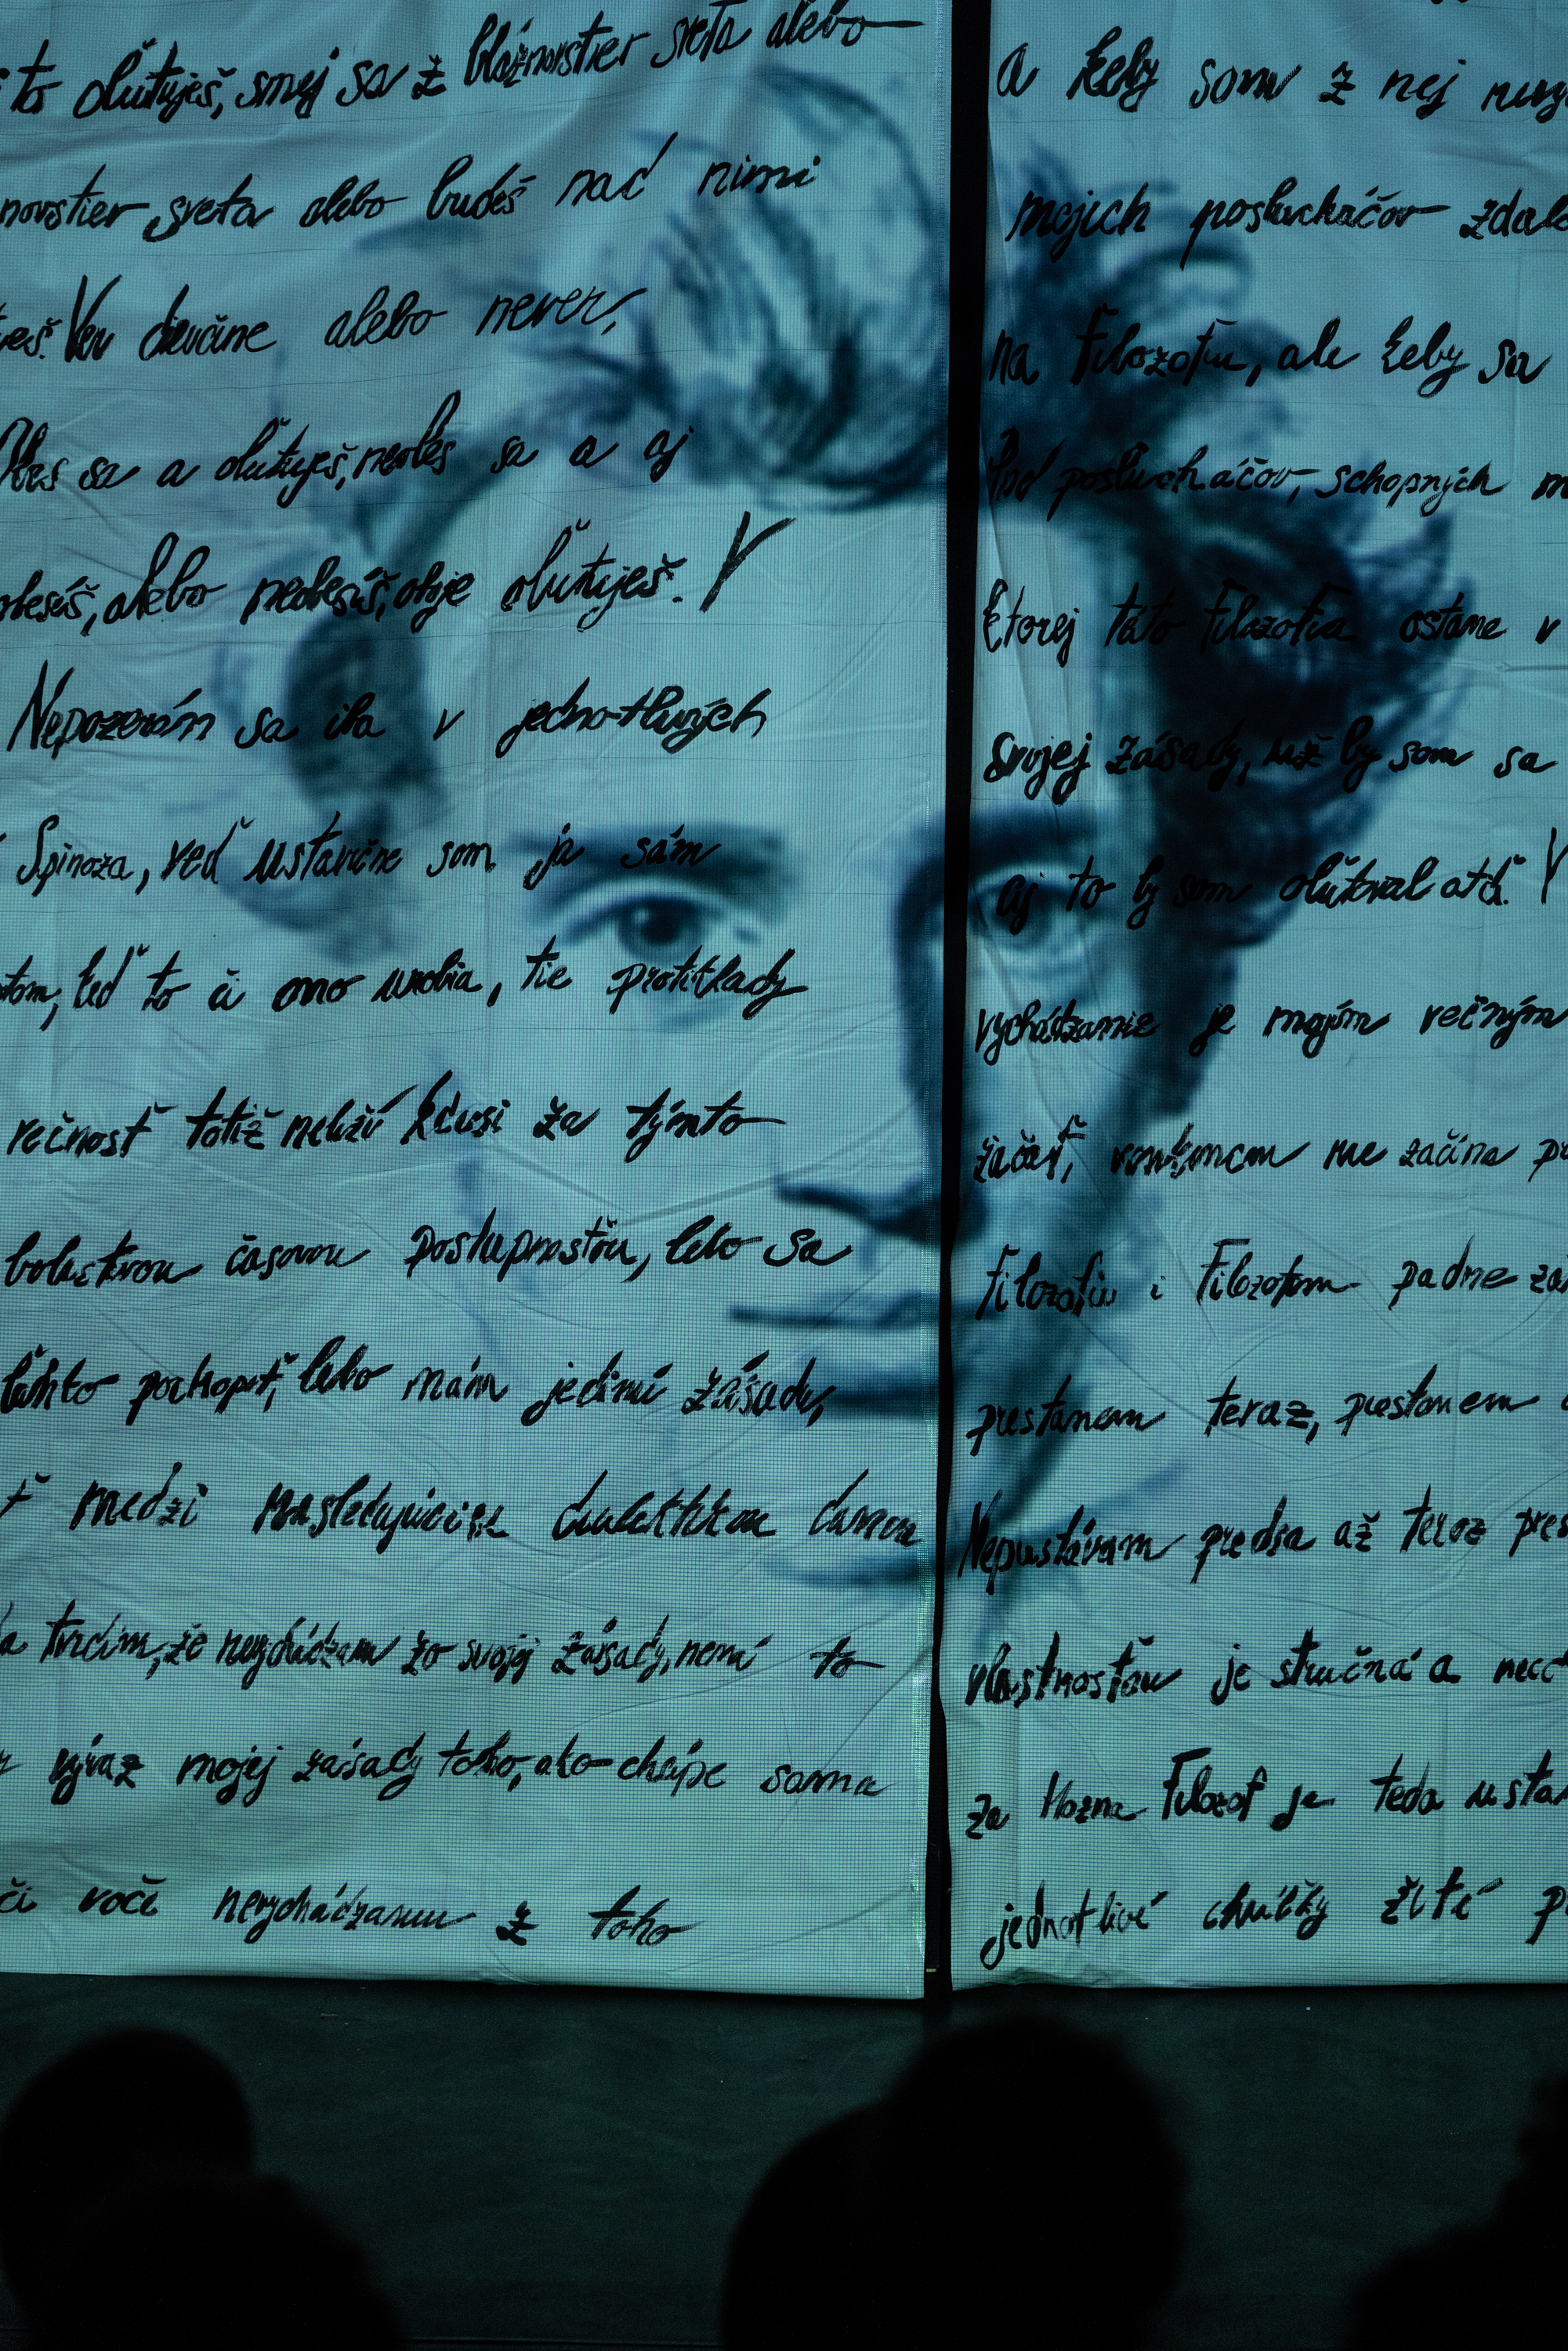 to oľutuješ, smej sa z bláznovstier sveta alebo
novstier sveta alebo budeš nad nimi
Ver dievčine alebo never,
Obes sa a oľutuješ, neobes sa a aj
obesíš, alebo neobesíš, oboje oľutuješ. V
Nepozerám sa iba v jednotlivých
Spinoza, veď ustavične som ja sám
keď to či ono urobia, tie protiklady
večnosť totiž neleží kdesi za týmto
bolestnou časovou postupnosťou, lebo sa
ľahko pochopiť, lebo mám jedinú zásadu,
medzi nasledujúcim
tvrdím, že nevychádzam zo svojej zásady, nemá to
výraz mojej zásady toho, ako chápe sama
či voči nevychádzaniu z toho
a keby som z nej
mojich poslucháčov
na Filozofiu, ale keby sa
poslucháčov, schopných
ktorej táto Filozofia ostane v
svojej zásady, už by som sa
aj to by som oľutoval atď. V
vychádzanie je mojím večným
začať, nezačína
Filozofiu i Filozofom padne
prestanem teraz, prestanem
Neprestávam predsa až teraz
vlastnosťou je stručná a
za blázna Filozof je teda
jednotlivé chvíľky žité